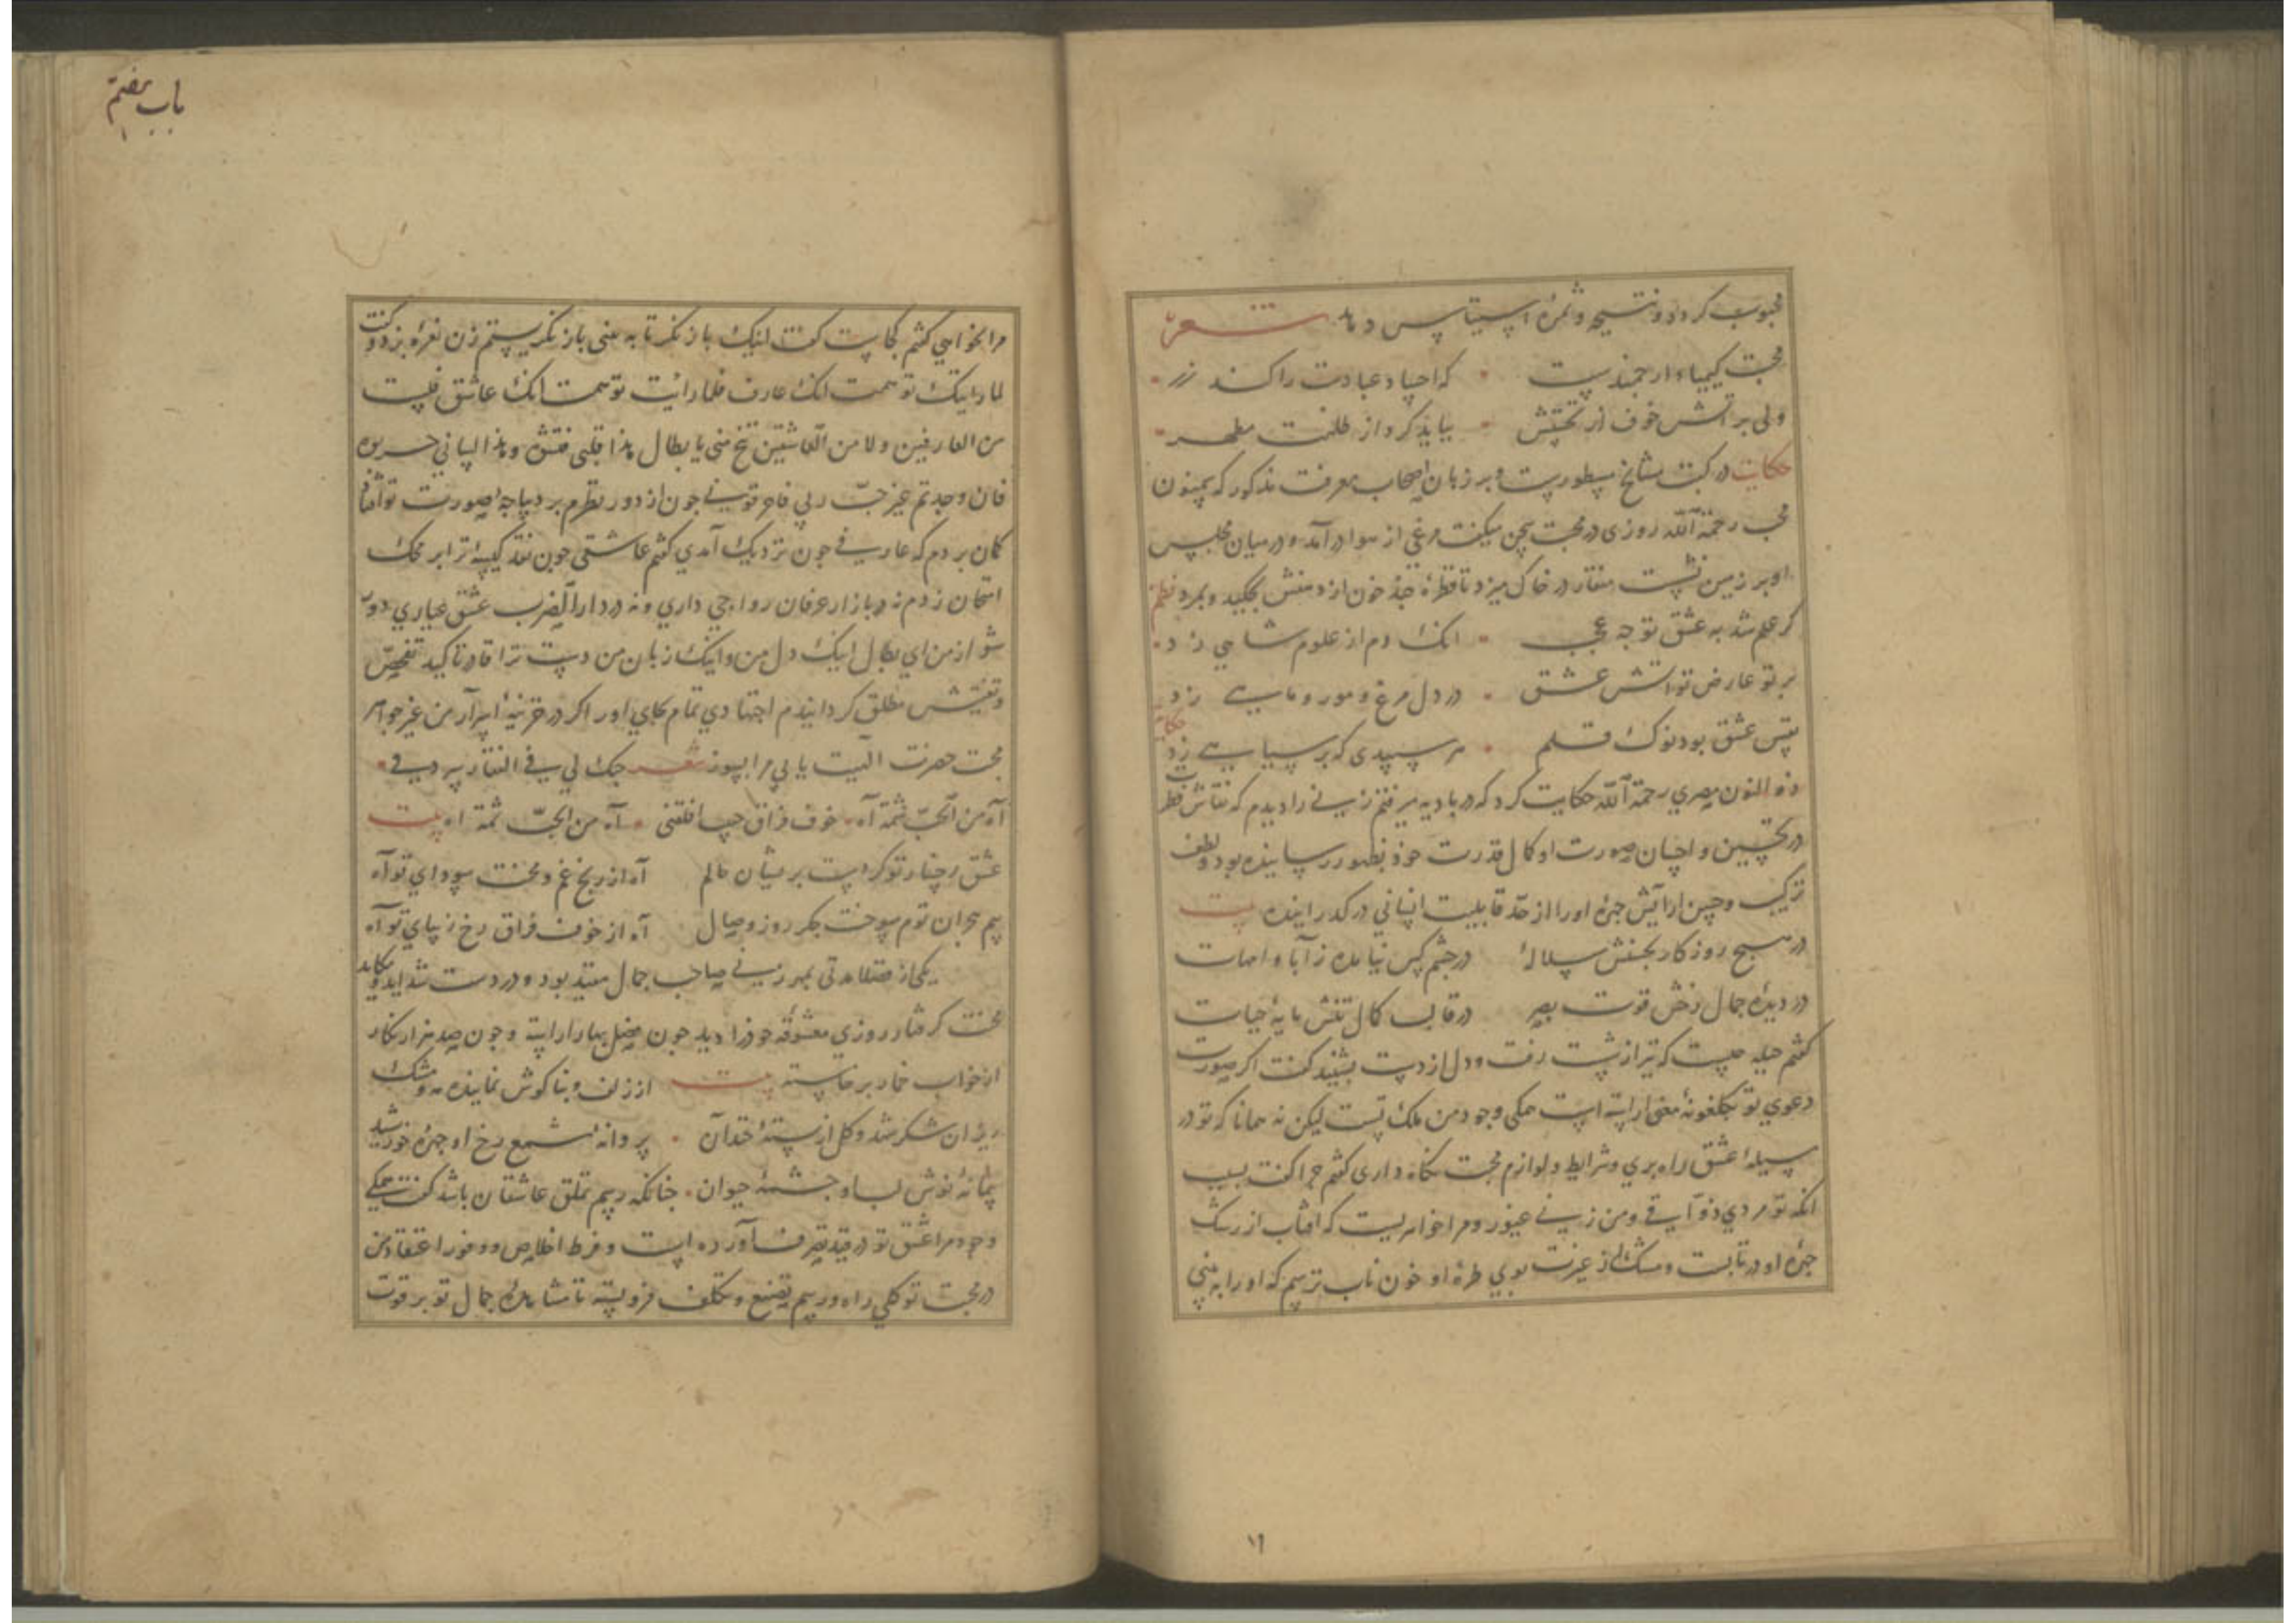 محبوب کردد و نتیجه و ثمرهٔ استیناس دهد شعر
محبت کیمیاء ارجمندیست که احیاء عبادت را کند زر
ولی بر آتش خوف از نخستش بباید کرد از ظلمت مطهر
حکایت در کتب مشایخ مسطورست و بر زبان اصحاب معرفت مذکور که سمنون
محب رحمة الله روزی در محبت سخن میکفت مرغی از هوا درآمد و در میان مجلس
او بر زمین نشست منقار در خاک میزد تا قطرهٔ چند خون از دهنش بچکید و بمرد نظم
کر علم شد به عشق تو جه عجب انک دم از علوم شاهی زد
برتو عارض تو آتش عشق در دل مرغ و مور و ماهی زد
بیش عشق بود نوک قلم هر سپیدی که بر سیاهی زد
حکایت
ذو النون مصری رحمة الله حکایت کرد که در بادیه میرفتم زنی را دیدم که نقاش فطرت
در تحسین و احسان صورت او کمال قدرت خود بظهور رسانیده بود و لطف
ترکیب و حسن آرایش جهرهٔ او را از حد قابلیت انسانی درکذرانیده بیت
در هیچ روزکار بجنسش سلالهٔ در جشم کس نیامده ز آبا و امهات
در دیدهٔ جمال رخش قوت بصر در قالب کمال تنش مایهٔ حیات
کفتم حیله جیست که تیر از شست رفت و دل از دست بشنید کفت اکر صورت
دعوی تو بکلغونهٔ معنی آراسته است همکی وجود من ملک تست لیکن نه همانا که تو در
سبیل عشق راه بری و شرایط و لوازم محبت نکاه داری کفتم جرا کفت بسبب
انکه تو مردی ذوّاقی و من زنی غیور و مرا خواهریست که آفتاب از رشک
جهرهٔ او در تابست و مشک از غیرت بوی طرهٔ او خون ناب ترسم که او را به بینی
۱۶
باب هفتم
مرا نخواهی کفتم کجاست کفت اینک باز نکر تا به بینی باز نکریستم زن نعره بزد و کفت
لما رایتک توهمت انک عارف فلما رأیت توهمت انک عاشق فلست
من العارفین و لا من العاشقین تنح منی یا بطال هذا قلبی فتش و هذا لسانی
فان وجدتم غیر حبّ ربی جون از دور نظرم بر دیباجهٔ صورت تو افتاد
کمان بردم که عارفی جون نزدیک آمدی کفتم عاشقی جون نقد کیسهٔ ترا بر محک
امتحان زدم نه در بازار عرفان رواجی داری و نه در دار الضرب عشق عیاری دور
شو از من ای بطال اینک دل من و اینک زبان من دست ترا قادر تاکید تفحّص
و تفتیش مطلق کردانیدم اجتهادی تمام بجای آور اکر در خزینهٔ اسرار من غیر جواهر
محبت حضرت الهیت یابی مرا بسوز شعر حبک لی فی الفؤاد
آه من الحبّ ثمّة آه خوف فراق آه من الحبّ ثمة اه بیت
عشق رخسار تو کردست بریشان حالم آه از رنج غم و محنت سودای تو آه
بیم هجران توم سوخت جکر روز وصال آه از خوف فراق رخ زیبای تو آه
یکی از فضلا مدتی بمهر زنی صاحب جمال مقید بود و در دست شداید و مکاید
محنت کرفتار روزی معشوقه خود را دید جون فصل بهار آراسته و جون صد هزار نکار
از خواب خمار برخاسته بیت از زلف و بناکوش نماینده مه و مشک
ریزان شکر شد و کل از بستهٔ خندان بروانهٔ شمع رخ او جهرهٔ خورشید
بیمانهٔ نوش لب او جشمهٔ حیوان جنانکه رسم تملق عاشقان باشد کفت همکی
وجود مرا عشق تو در قید تصرف آورده است و فرط اخلاص و وفور اعتقاد من
در محبت تو کلی راه و رسم تصنع و تکلف فرو بسته تا مشاهدهٔ جمال تو بر قوت